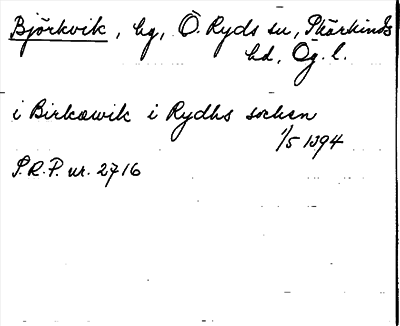 Björkvik, by, Ö. Ryds sn, Skärkinds
hd, Ög. l.
i Birkæwik i Rydhs sochen
1/5 1394
S.R.P. nr. 2716